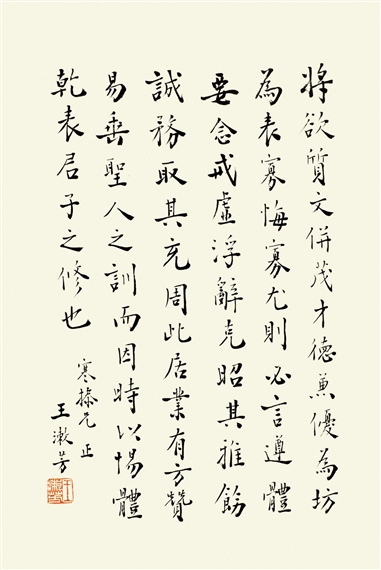 將欲質文併茂才德兼優為坊
為表寡悔寡尤則必言遵體
要念戒虛浮辭克昭其雅飭
誠務取其充周此居業有方贊
易垂聖人之訓而因時以惕體
乾表君子之修也
寒操兄正
王漱芳